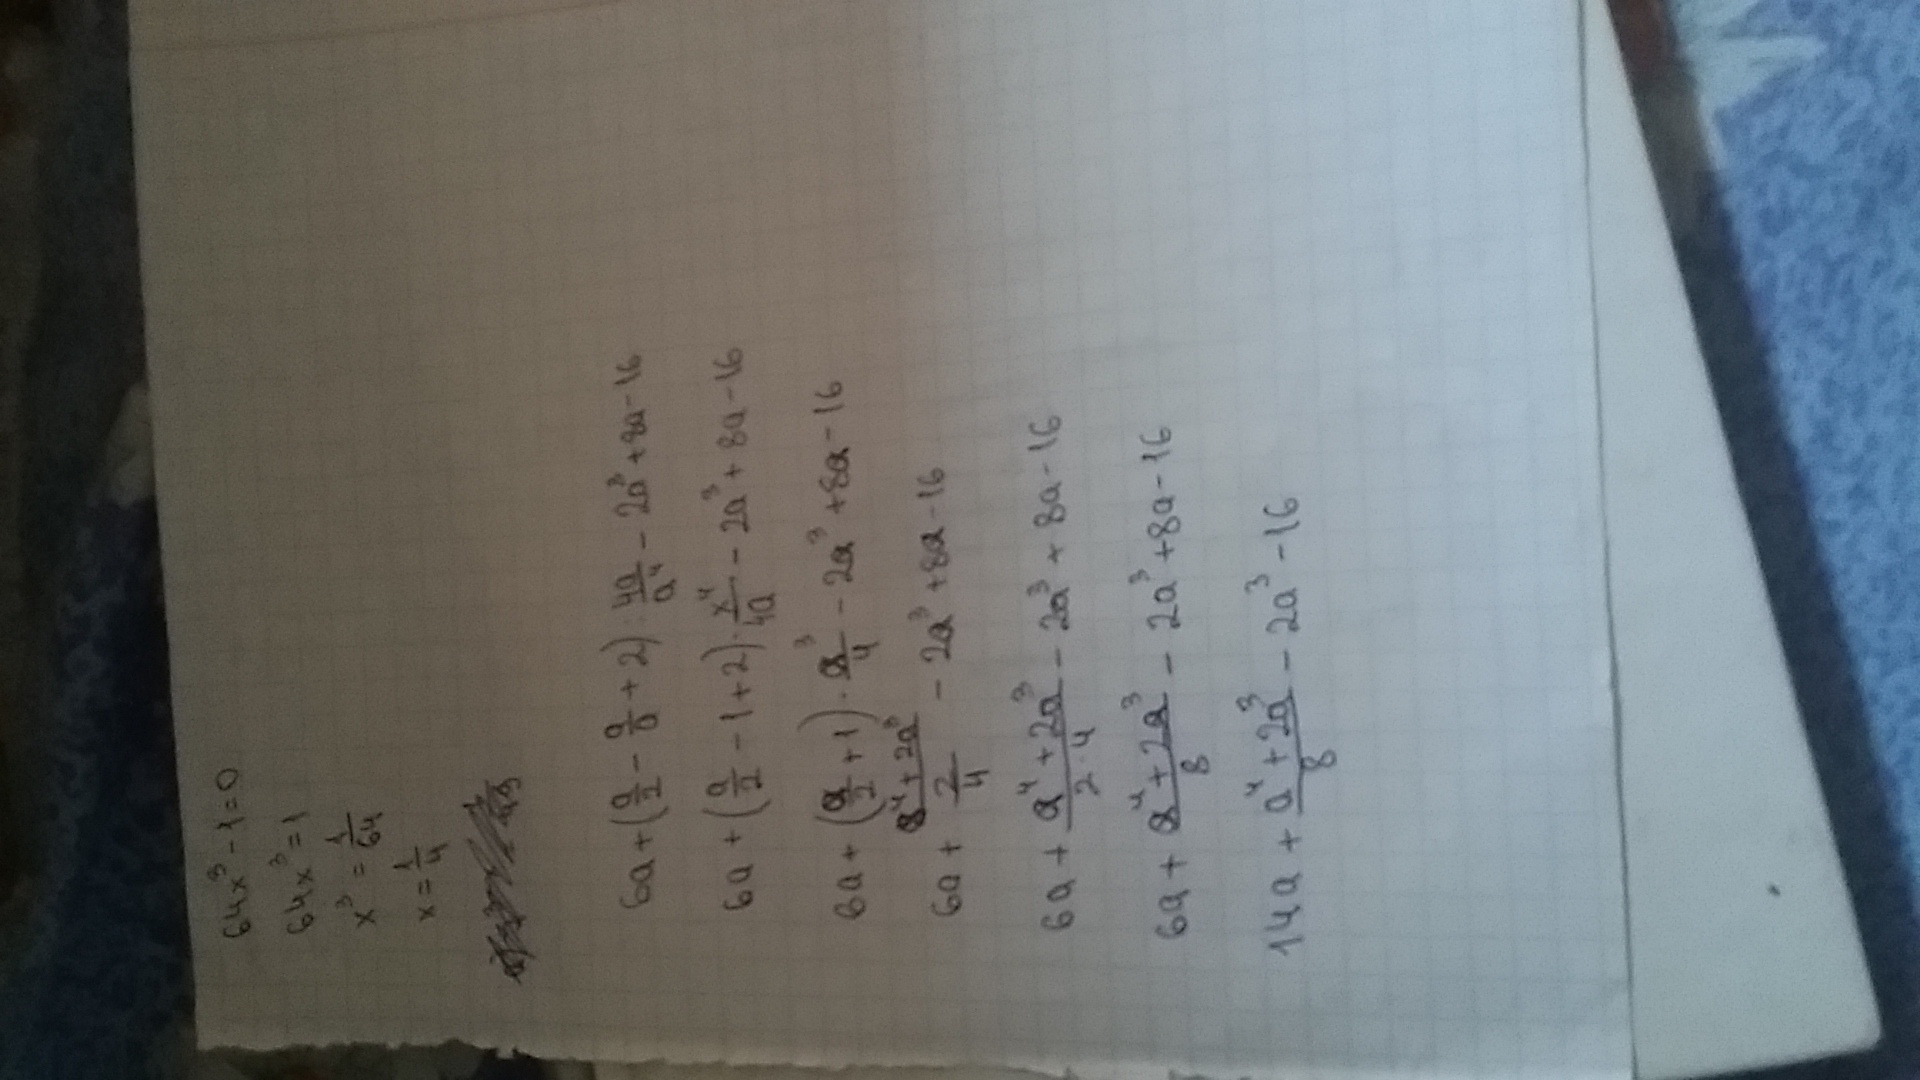 64x³ - 1 = 0
64x³ = 1
x³ = 1/64
x = 1/4
6a + (a/2 - a/a + 2) : 4a/a⁴ - 2a³ + 8a - 16
6a + (a/2 - 1 + 2) · x⁴/4a - 2a³ + 8a - 16
6a + (a/2 + 1) · a³/4 - 2a³ + 8a - 16
6a + ((a⁴ + 2a³)/2)/4 - 2a³ + 8a - 16
6a + (a⁴ + 2a³)/(2·4) - 2a³ + 8a - 16
6a + (a⁴ + 2a³)/8 - 2a³ + 8a - 16
14a + (a⁴ + 2a³)/8 - 2a³ - 16